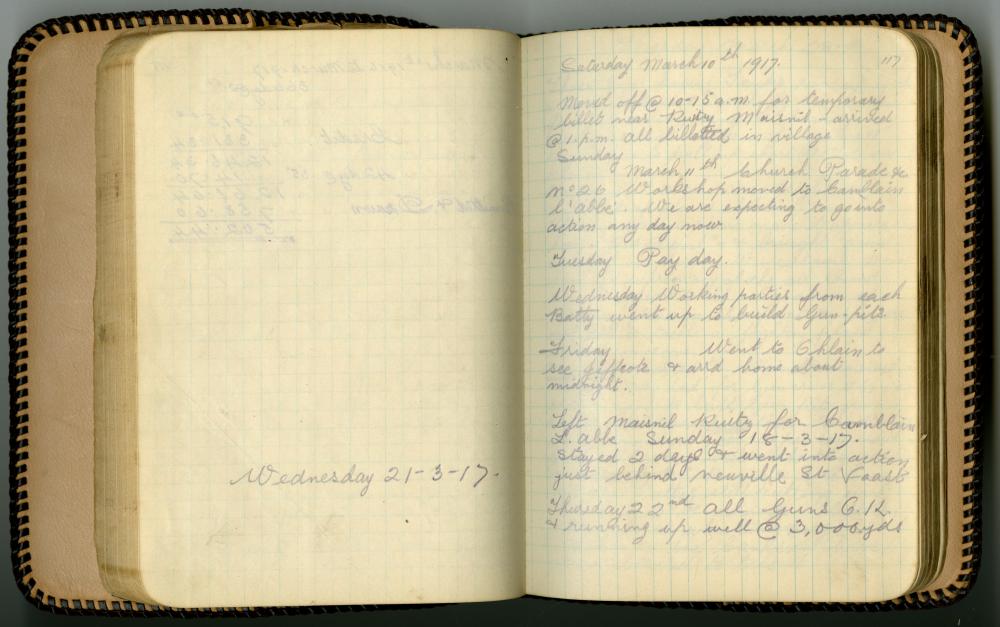 Wednesday 21-3-17.
117
Saturday March 10th 1917.
Moved off @ 10-15 a.m. for temporary
billet near Ruity Maisnil - arrived
@ 1. p.m. all billotted in village
Sunday
March 11th Church Parade &c
No 26 Workshop moved to Camblain
l'abbé. We are expecting to go into
action any day now.
Tuesday Pay day.
Wednesday Working parties from each
Batty went up to build Gun-pits
Friday Went to to
see & arrd home about
midnight.
Left Maisnil Ruitz for Camblain
L. abbe Sunday 18-3-17.
Stayed 2 days & went into action
just behind neuville St Vaast
Thursday 22nd all Guns
& running up well @ 3,000 yds